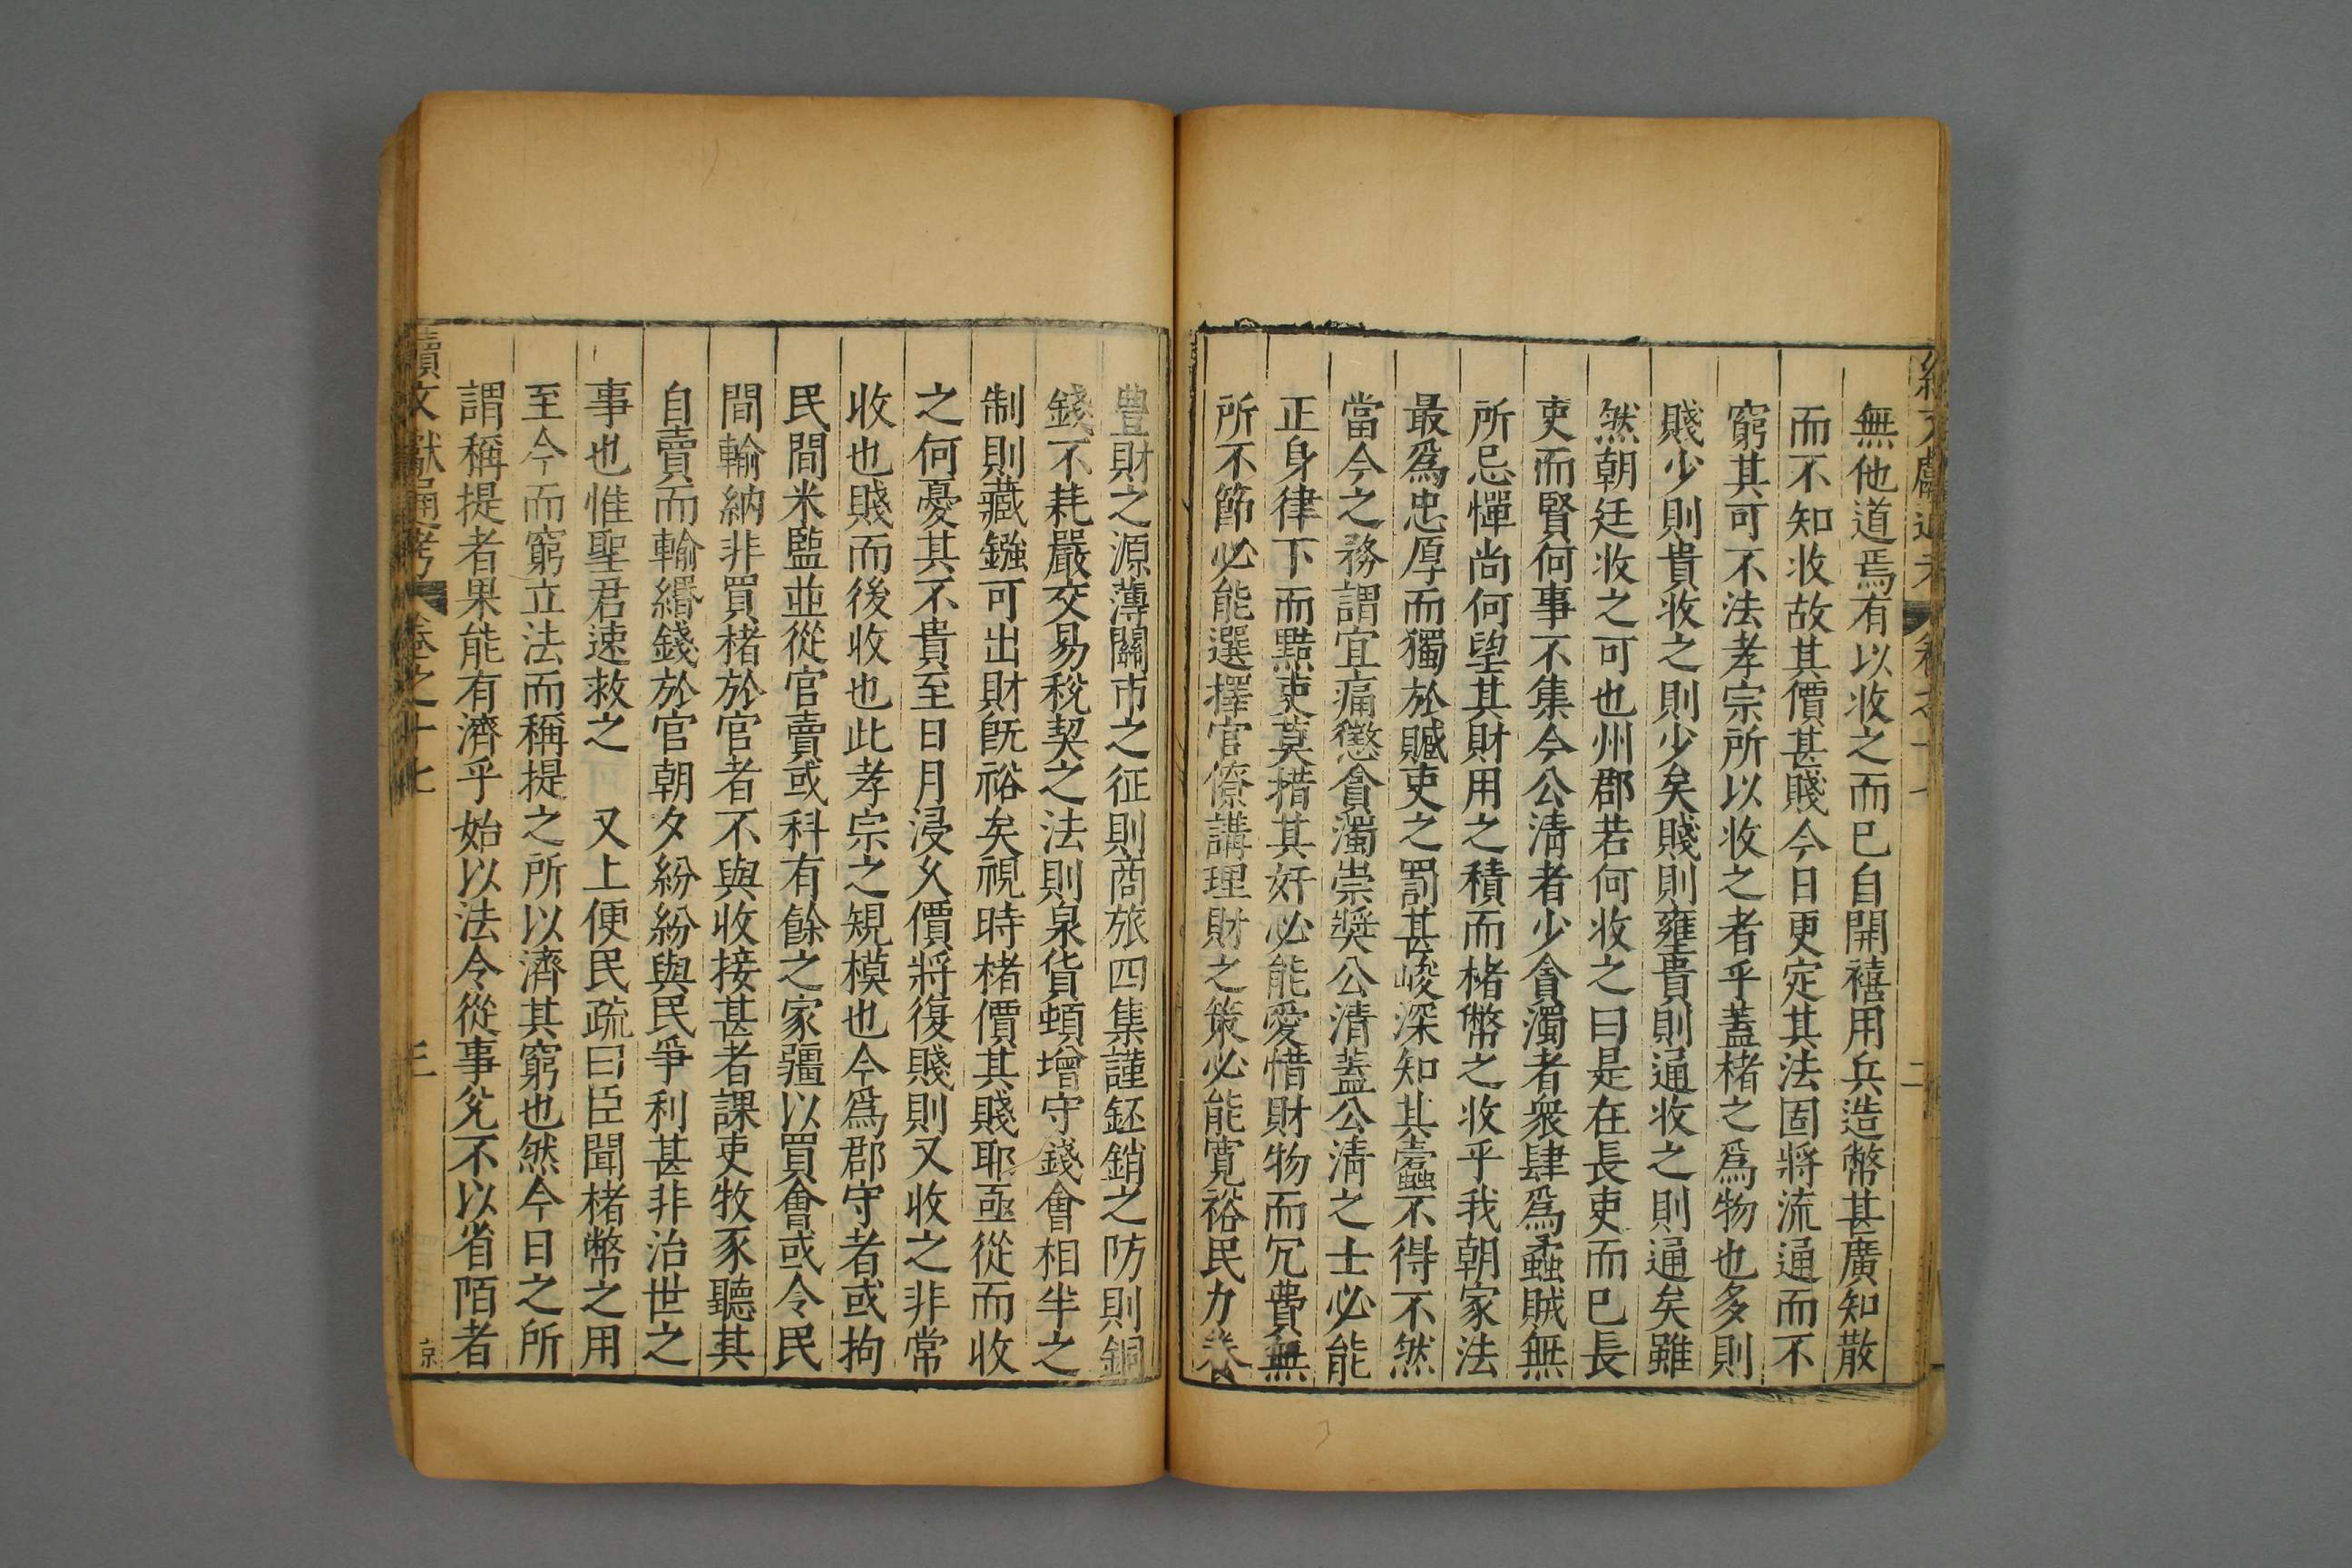 無他道焉有以收之而已自開禧用兵造幣甚廣知散
而不知收故其價甚賤今日更定其法固將流通而不
窮其可不法孝宗所以收之者乎蓋楮之爲物也多則
賤少則貴收之則少矣賤則壅貴則通收之則通矣雖
然朝廷收之可也州郡若何收之曰是在長吏而已長
吏而賢何事不集今公清者少貪濁者衆肆爲蟊賊無
所忌憚尚何望其財用之積而楮幣之收乎我朝家法
最爲忠厚而獨於贓吏之罰甚峻深知其蠹不得不然
當今之務謂宜痛懲貪濁崇奬公清蓋公清之士必能
正身律下而黠吏莫措其奸必能愛惜財物而冗費無
所不節必能選擇官僚講理財之策必能寬裕民力養
豊財之源薄關市之征則商旅四集謹鈺銷之防則銅
錢不耗嚴交易稅契之法則泉貨頓增守錢會相半之
制則藏鏹可出財旣裕矣視時楮價其賤耶亟從而收
之何憂其不貴至日月浸久價將復賤則又收之非常
收也賤而後收也此孝宗之規模也今爲郡守者或拘
民間米監並從官賣或科有餘之家彊以買會或令民
間輸納非買楮於官者不與收接甚者課吏牧豕聽其
自賣而輸緡錢於官朝夕紛紛與民爭利甚非治世之
事也惟聖君速救之　又上便民疏曰臣聞楮幣之用
至今而窮立法而稱提之所以濟其窮也然今日之所
謂稱提者果能有濟乎始以法令從事兊不以省陌者
續文獻通考 卷之十七 三 京